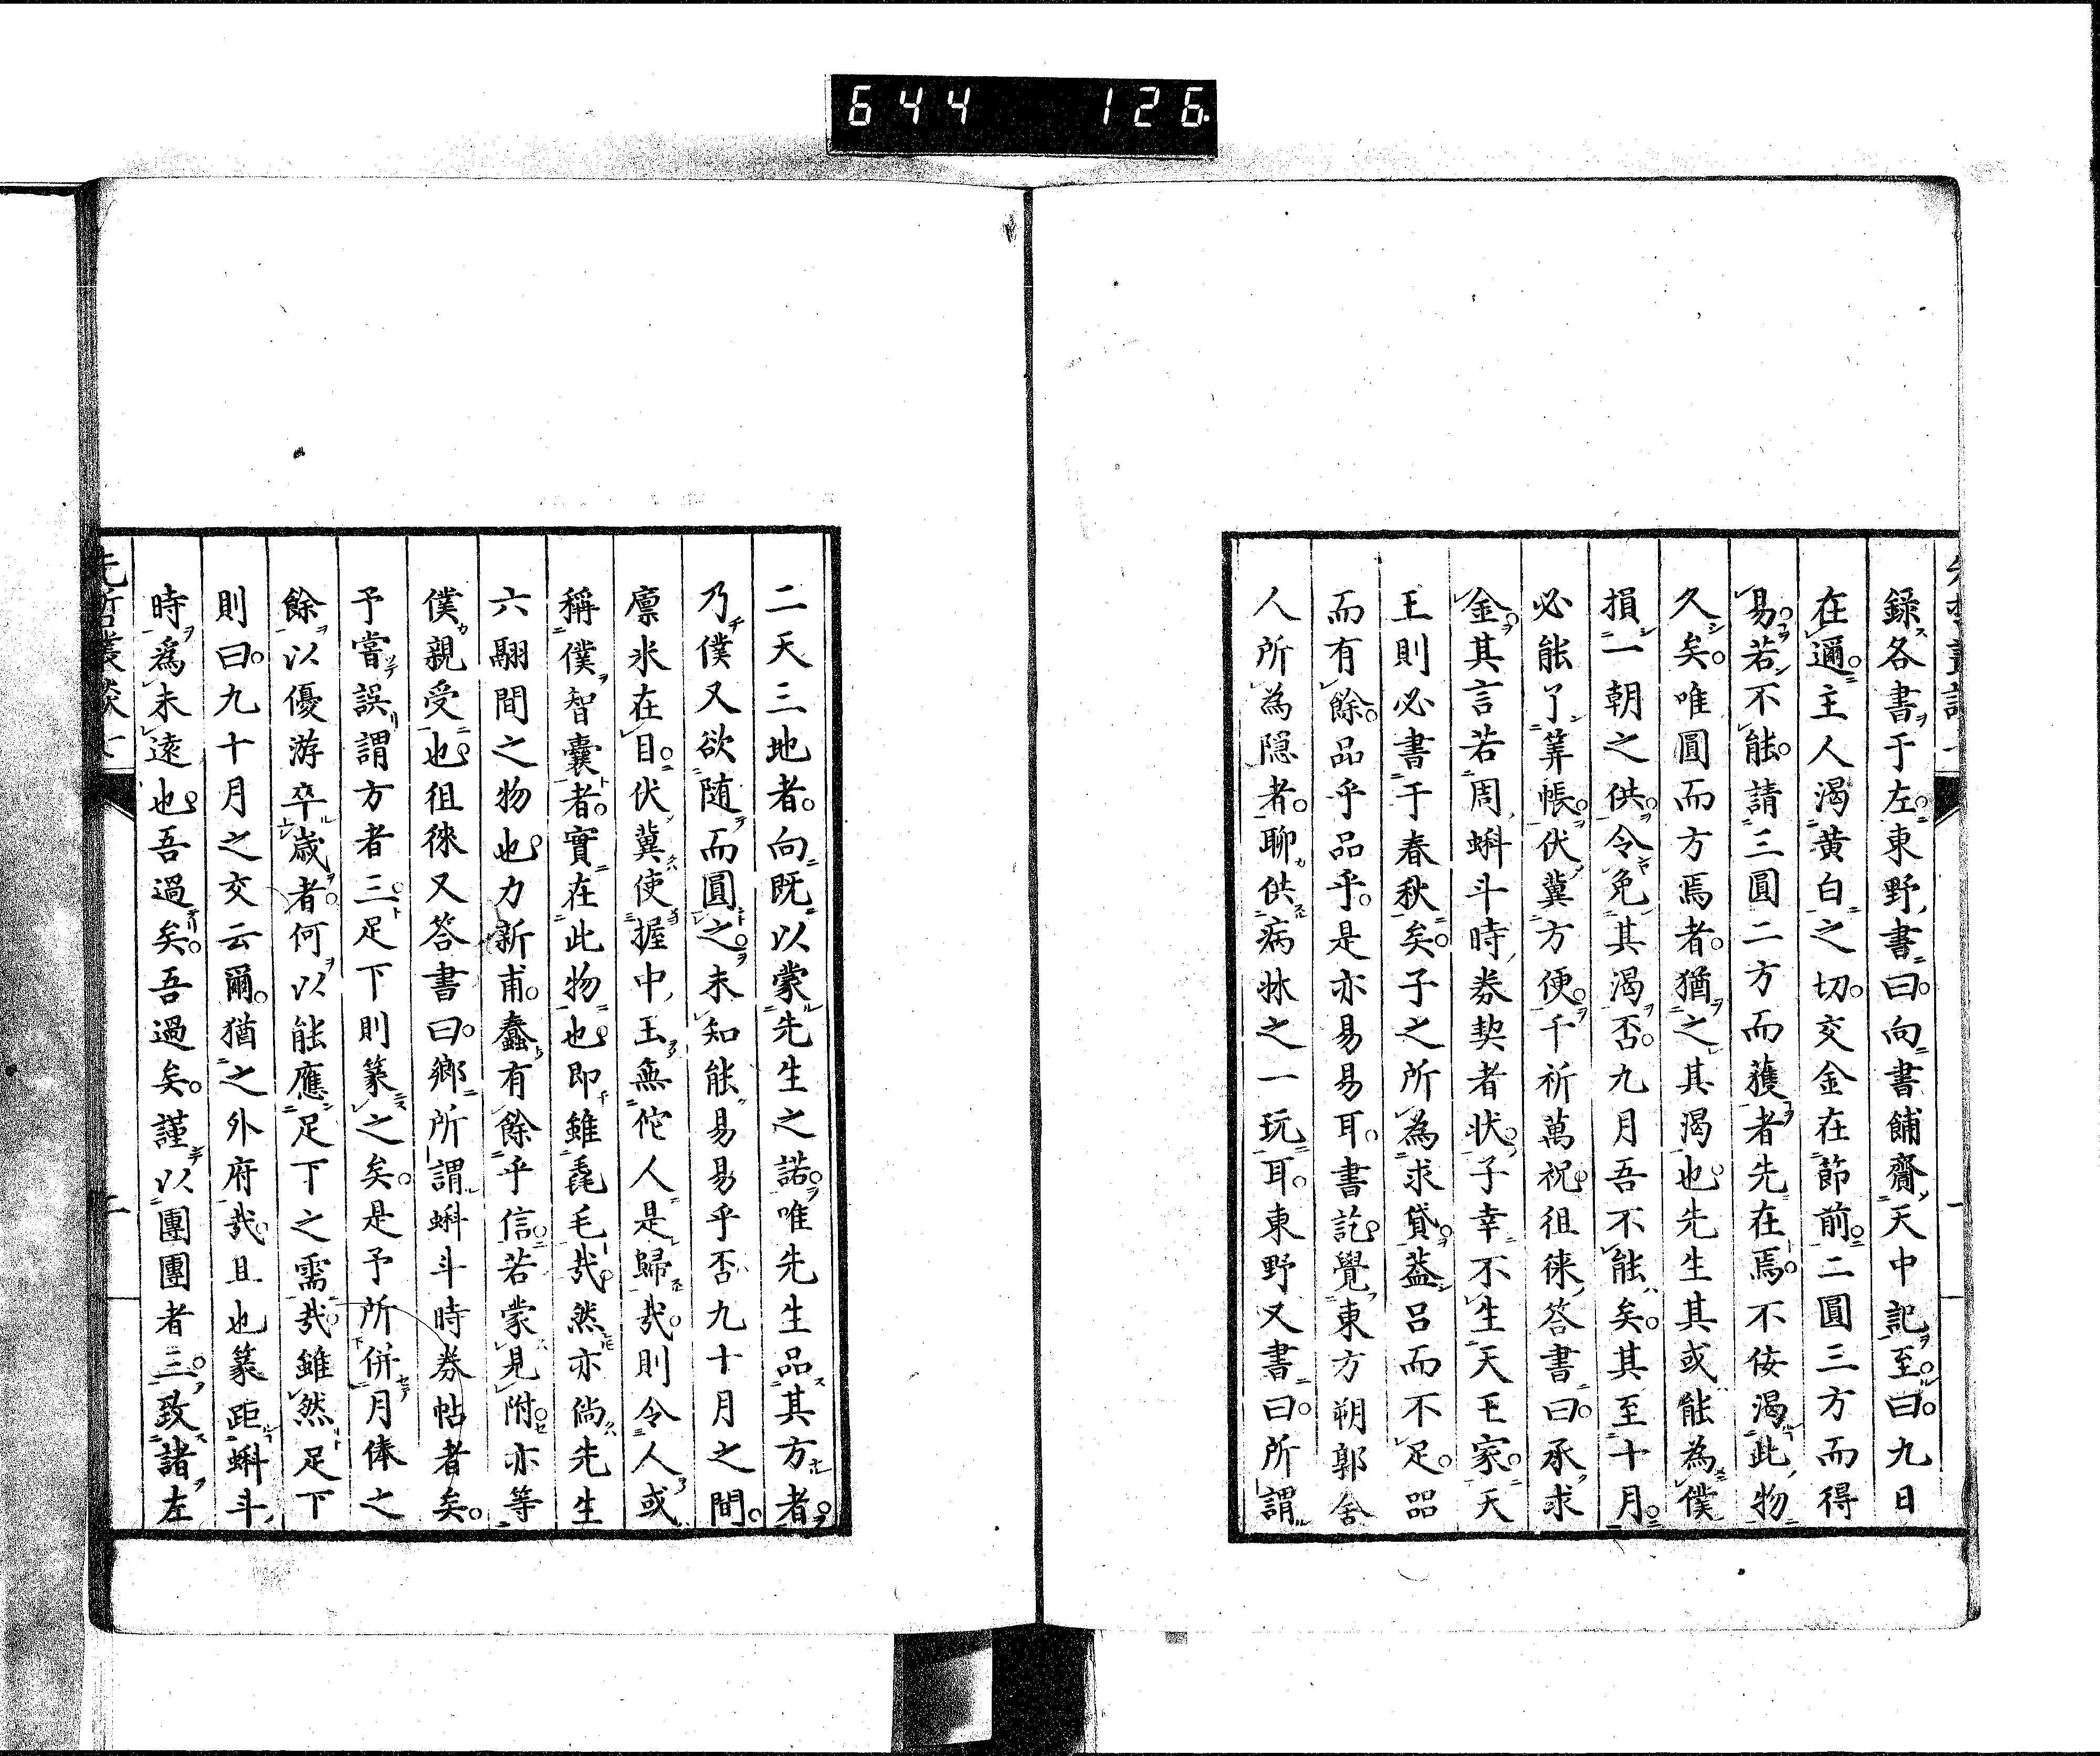 644 126
録各書于左。東野書曰。向書舗齎天中記至曰。九日
在邇。主人渇黄白之切。交金在節前。二圓三方而得
易。若不能。請三圓二方而獲者先在焉。不佞渇此物
久矣。唯圓而方焉者。猶之其渇也。先生其或能為僕
損一朝之供。令免其渇否。九月吾不能矣。其至十月。
必能了筭帳。伏冀方便。千祈萬祝。徂徠答書曰。承求
金。其言若周。蝌斗時券契者状。子幸不生天王家。天
王則必書于春秋矣。子之所為求貸。蓋呂而不足。㗊
而有餘。品乎品乎。是亦易易耳。書訖。覺東方朔郭舍
人所為隠者。聊供病牀之一玩耳。東野又書曰。所謂
二天三地者。向既以蒙先生之諾。唯先生品其方者。
乃僕又欲随而圓之。未知能易易乎否。九十月之間。
廪米在目。伏冀使握中玉無佗人是歸哉。則令人或
稱僕智嚢者。實在此物也。即雖毳毛哉。然亦尚先生
六翮間之物也。力新甫。蠢有餘乎信。若蒙見附。亦等
僕親受也。徂徠又答書曰。郷所謂蝌斗時券帖者矣。
予嘗誤謂方者三。足下則篆之矣。是予所併月俸之
餘以優游卒歳者。何以能應足下之需哉。雖然足下
則曰。九十月之交云爾。猶之外府哉。且也篆距蝌斗
時。為未遠也。吾過矣。吾過矣。謹以團團者三。致諸左